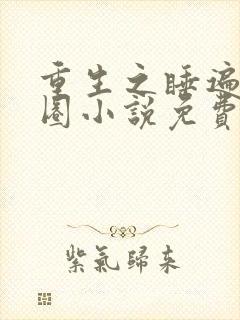 重生之睡遍
圈小說免費
紫氣歸來